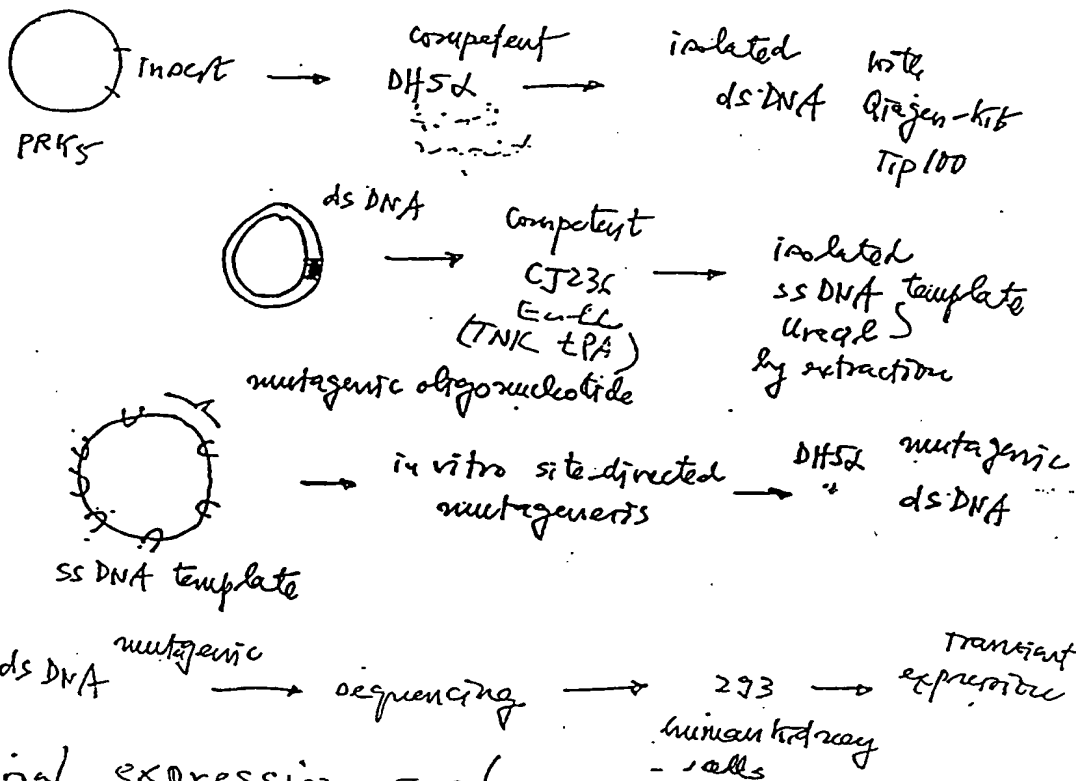 Insert → competent DH5α → isolated ds DNA with Qiagen-kit Tip 100
PRK5
ds DNA → competent CJ236 → isolated ss DNA template Uracil by extraction
(TNK tPA)
mutagenic oligonucleotide
→ in vitro site-directed mutagenesis → DH5α mutagenic ds DNA
ss DNA template
ds DNA mutagenic → sequencing → 293 human kidney cells → Transient expression
expression